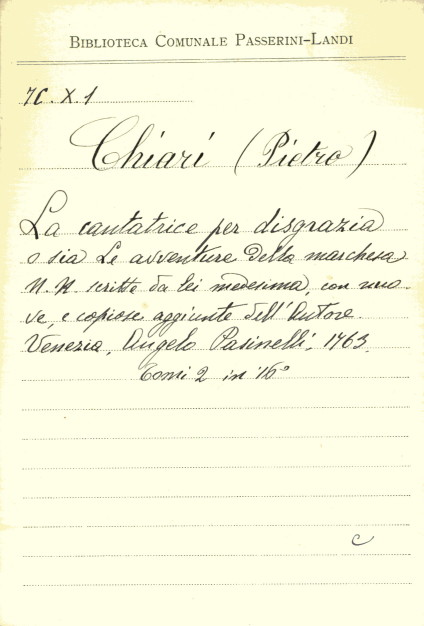 BIBLIOTECA COMUNALE PASSERINI-LANDI
7C.X.1
Chiari (Pietro)
La cantatrice per disgrazia
o sia Le avventure della marchesa
N.N. scritte da lei medesima, con nuo-
ve, e copiose aggiunte dell'Autore.
Venezia, Angelo Pasinelli, 1763.
Tomi 2 in 16°
c